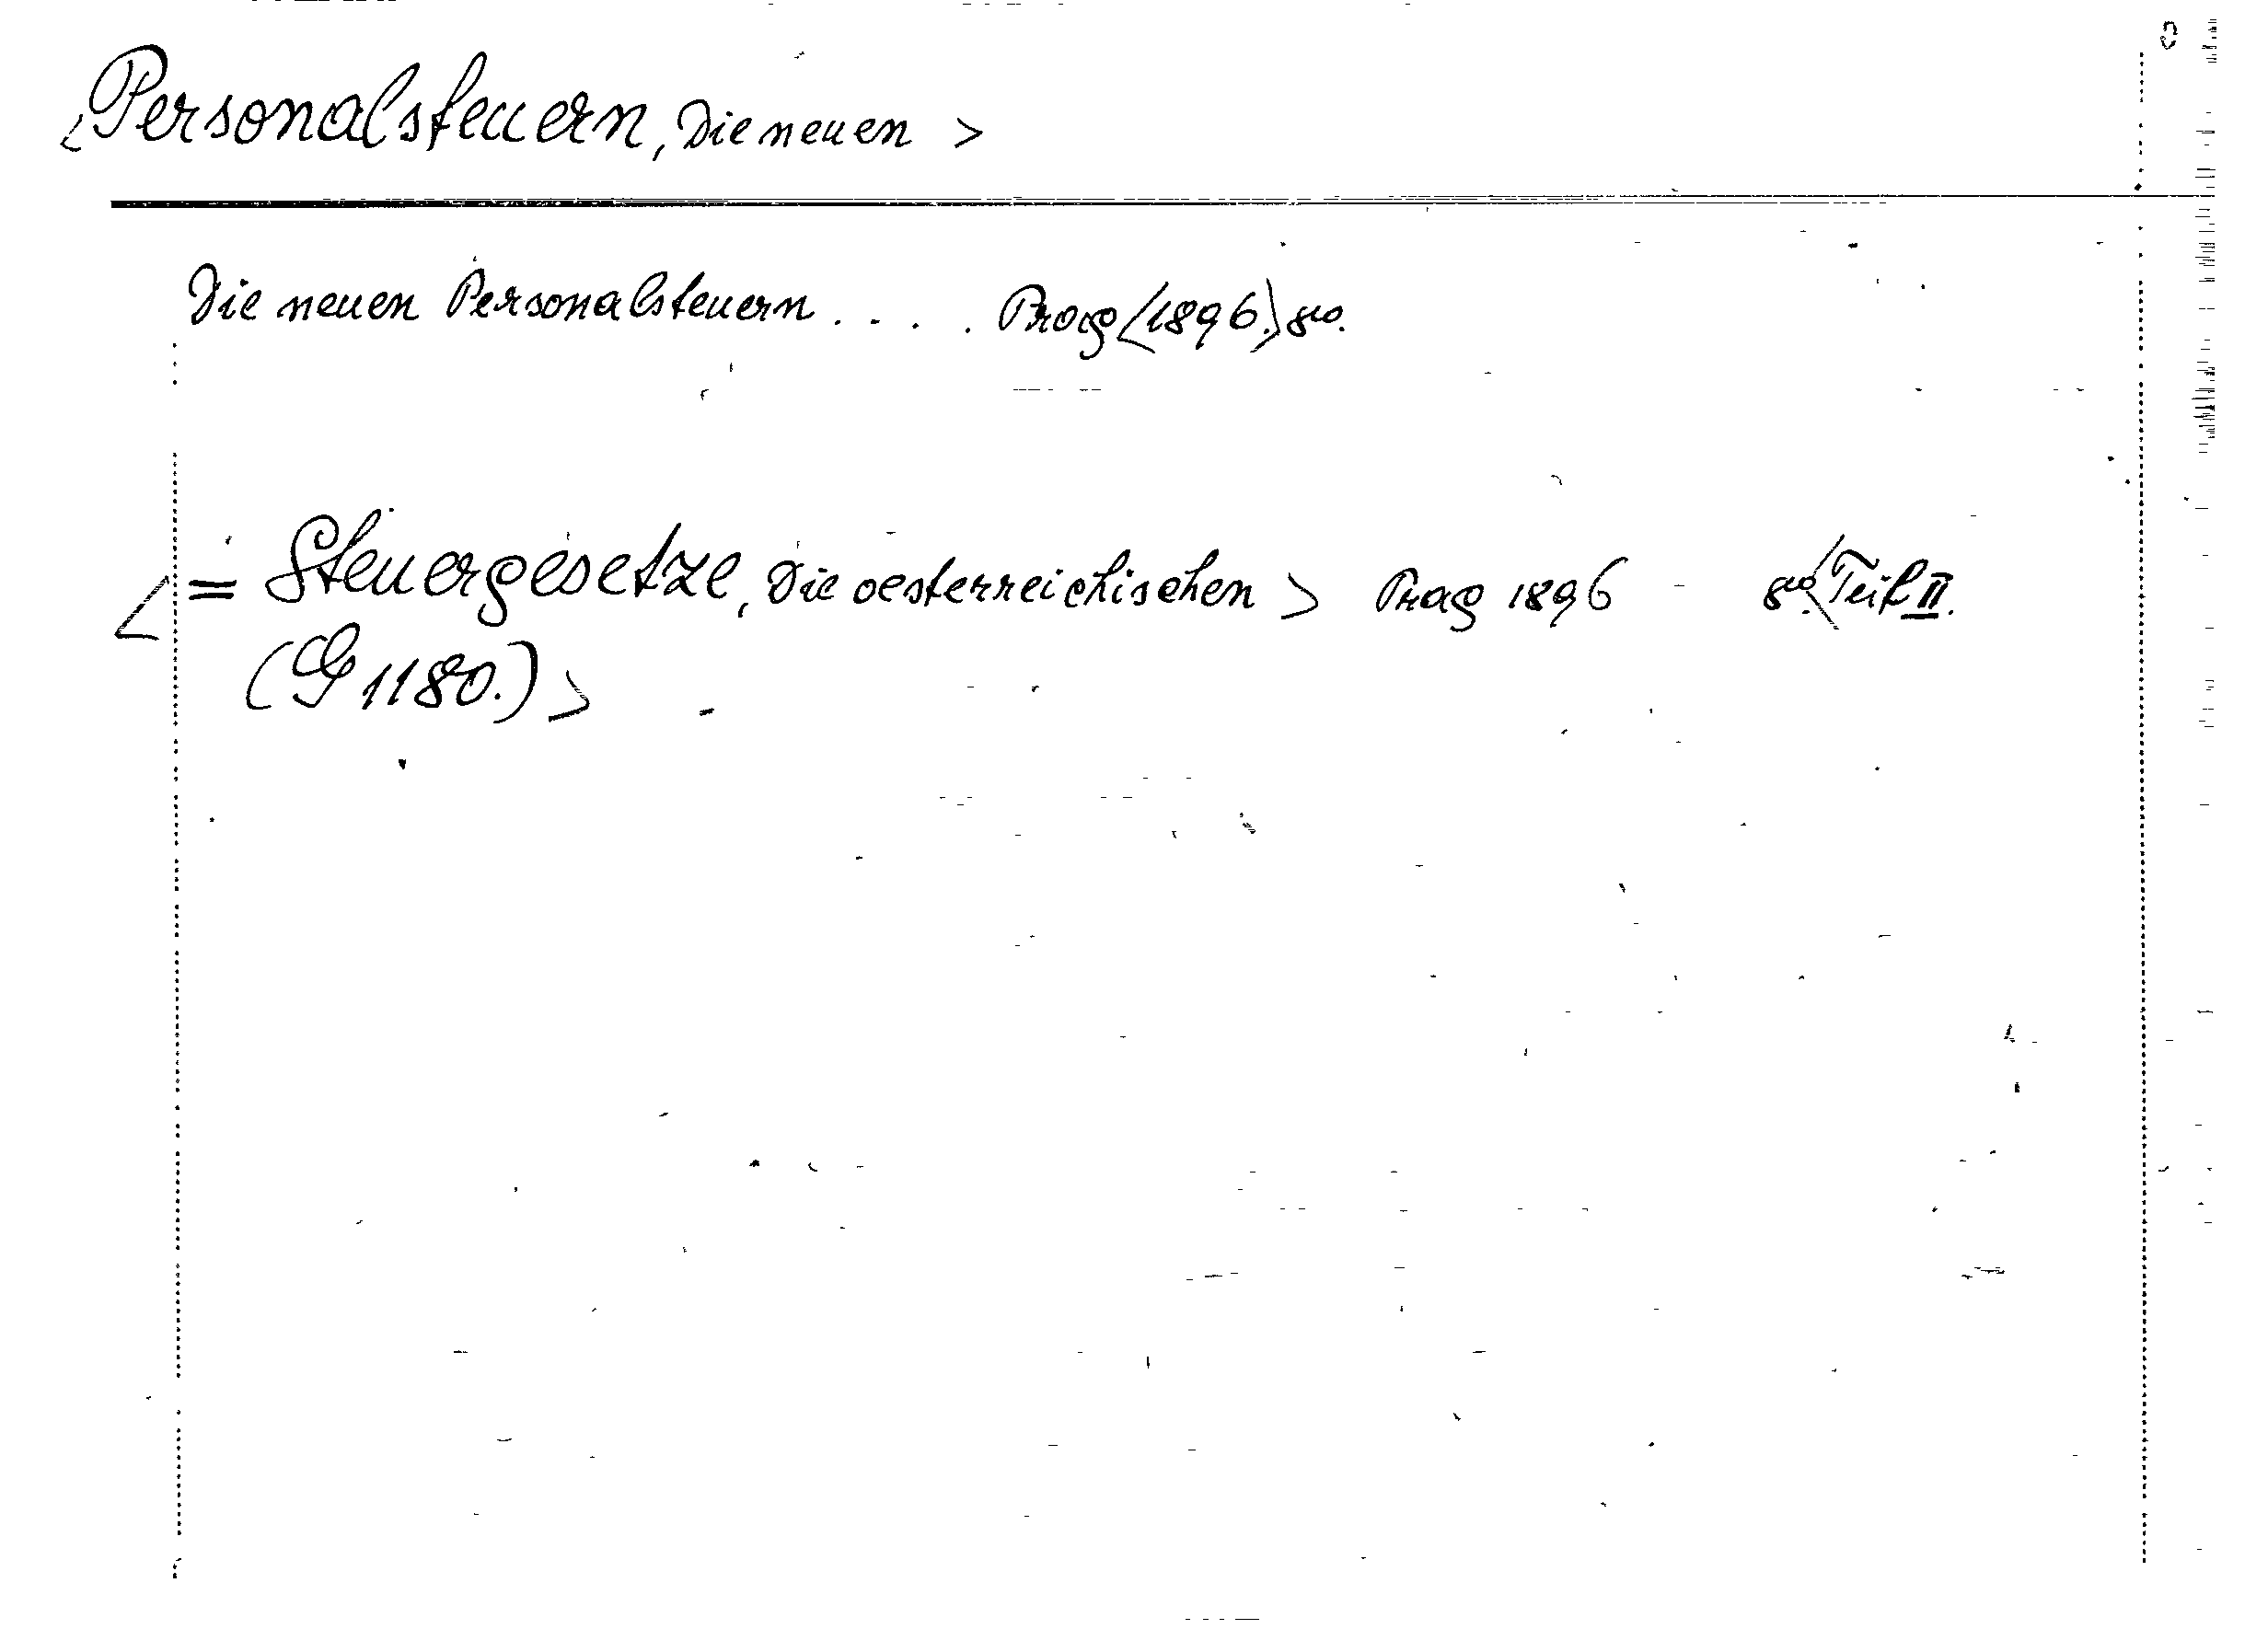 <Personalsteuern, Die neuen >
Die neuen Personalsteuern . . . . Prag <1896.> 8vo.
<= Steuergesetze, Die oesterreichischen > Prag 1896 - 8vo. <Teil II.
(G 1180.)>